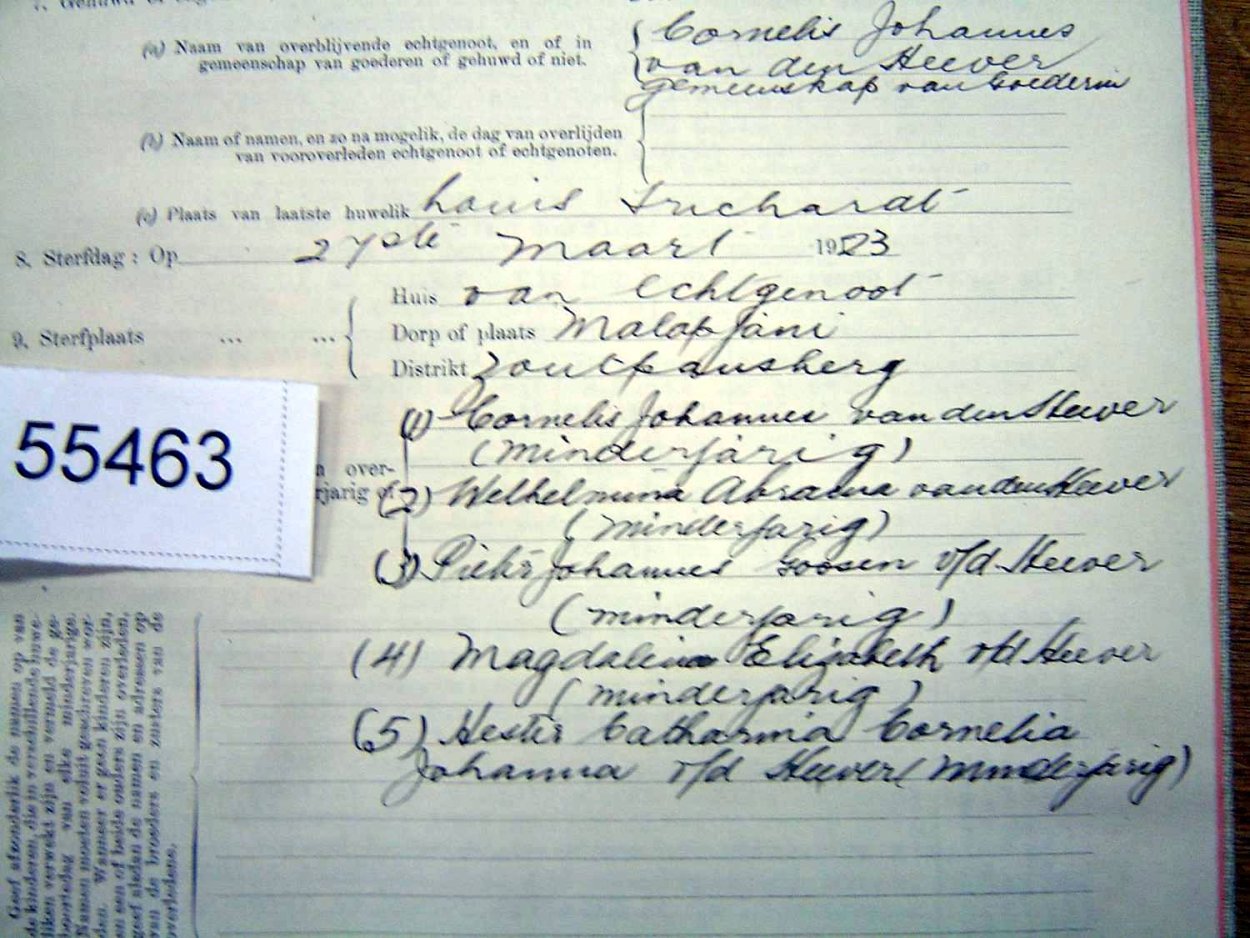 (a) Naam van overblijvende echtgenoot, en of in
gemeenschap van goederen of gehuwd of niet.
Cornelis Johannes
van den Heever
gemeenskap van Goederen
(b) Naam of namen, en zo na mogelik, de dag van overlijden
van vooroverleden echtgenoot of echtgenoten.
(c) Plaats van laatste huwelik Louis Trichardt
8. Sterfdag: Op 27ste Maart 1923
9. Sterfplaats ... ...
Huis van Echtgenoot
Dorp of plaats Malapjani
Distrikt Zoutpansberg
55463
n over-
rjarig of
(1) Cornelis Johannes van den Heever
(minderjarig)
(2) Welhelmina Abrama van den Heever
(minderjarig)
(3) Pieter Johannes Goosen v/d Heever
(minderjarig)
(4) Magdalena Elizabeth v/d Heever
(minderjarig)
(5) Hester Catharina Cornelia
Johanna v/d Heever (minderjarig)
Geef afzonderlik de namen op van
de kinderen, die in verschillende huwe-
liken verwekt zijn en vermeld de ge-
boortedag van elke minderjarige.
Namen moeten voluit geschreven wor-
den. Wanneer er geen kinderen zijn,
en een of beide ouders zijn overleden,
geef aldan de namen en adressen op
van de broeders en zusters van de
overledene.